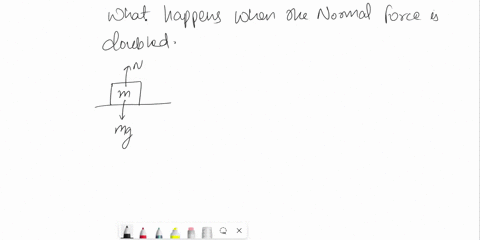 What happens when the Normal force is
doubled.
N
m
mg